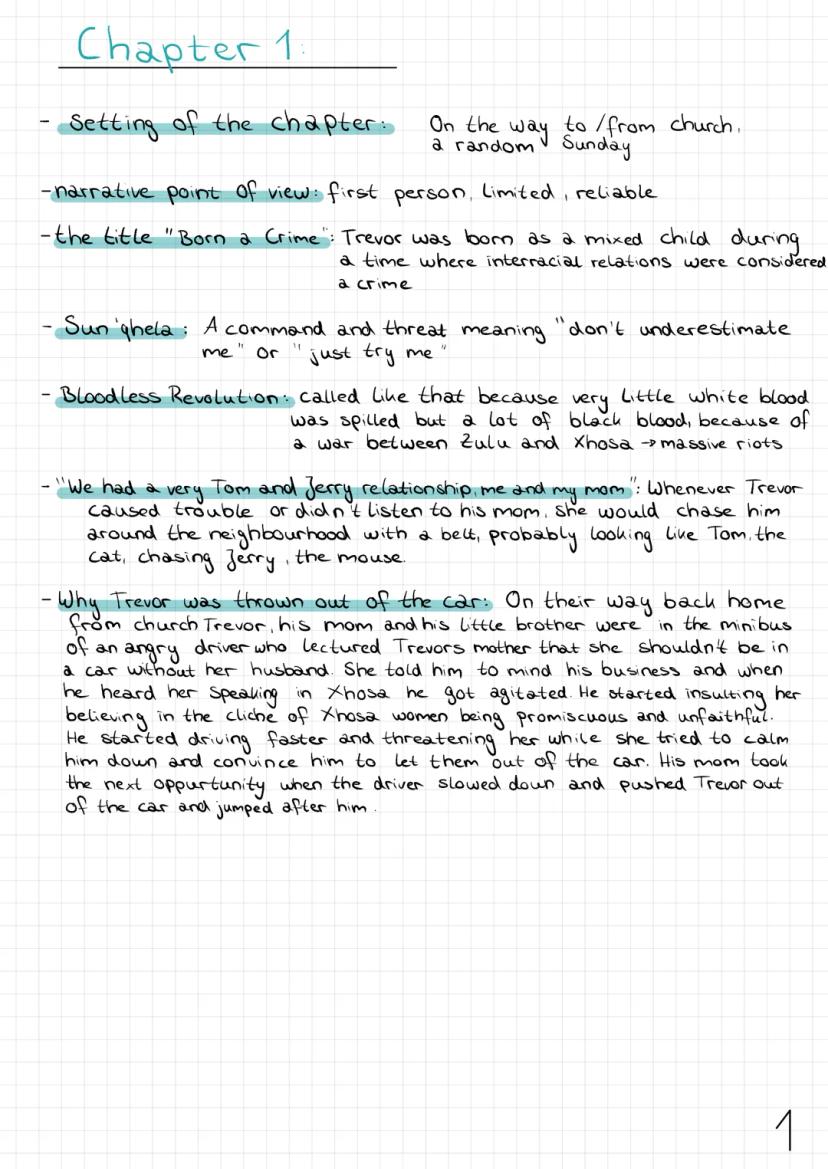 Chapter 1:
- Setting of the chapter: On the way to / from church,
a random Sunday
- narrative point of view: first person, limited, reliable
- the title "Born a Crime": Trevor was born as a mixed child during
a time where interracial relations were considered
a crime
- Sun'qhela: A command and threat meaning "don't underestimate
me" or "just try me"
- Bloodless Revolution: called like that because very little white blood
was spilled but a lot of black blood, because of
a war between Zulu and Xhosa → massive riots
- "We had a very Tom and Jerry relationship, me and my mom": Whenever Trevor
caused trouble or didn't listen to his mom, she would chase him
around the neighbourhood with a belt, probably looking like Tom, the
cat, chasing Jerry, the mouse.
- Why Trevor was thrown out of the car: On their way back home
from church Trevor, his mom and his little brother were in the minibus
of an angry driver who lectured Trevors mother that she shouldn't be in
a car without her husband. She told him to mind his business and when
he heard her speaking in Xhosa he got agitated. He started insulting her
believing in the cliche of Xhosa women being promiscuous and unfaithful.
He started driving faster and threatening her while she tried to calm
him down and convince him to let them out of the car. His mom took
the next oppurtunity when the driver slowed down and pushed Trevor out
of the car and jumped after him.
1